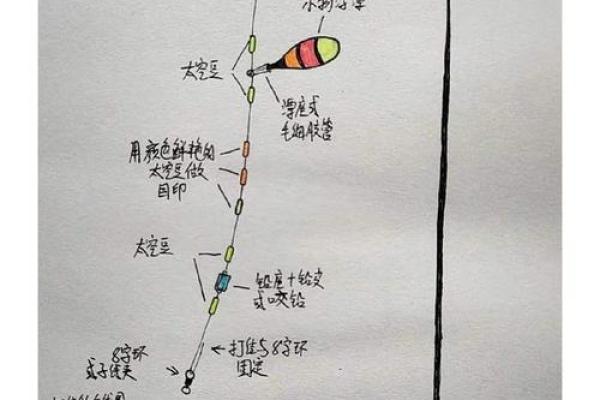 太空豆
漂座或
毛细胶管
用颜色鲜艳的
太空豆做
目印
太空豆
铅座+铅皮
或咬铅
8字环
或子线夹
打结与8字环
固定